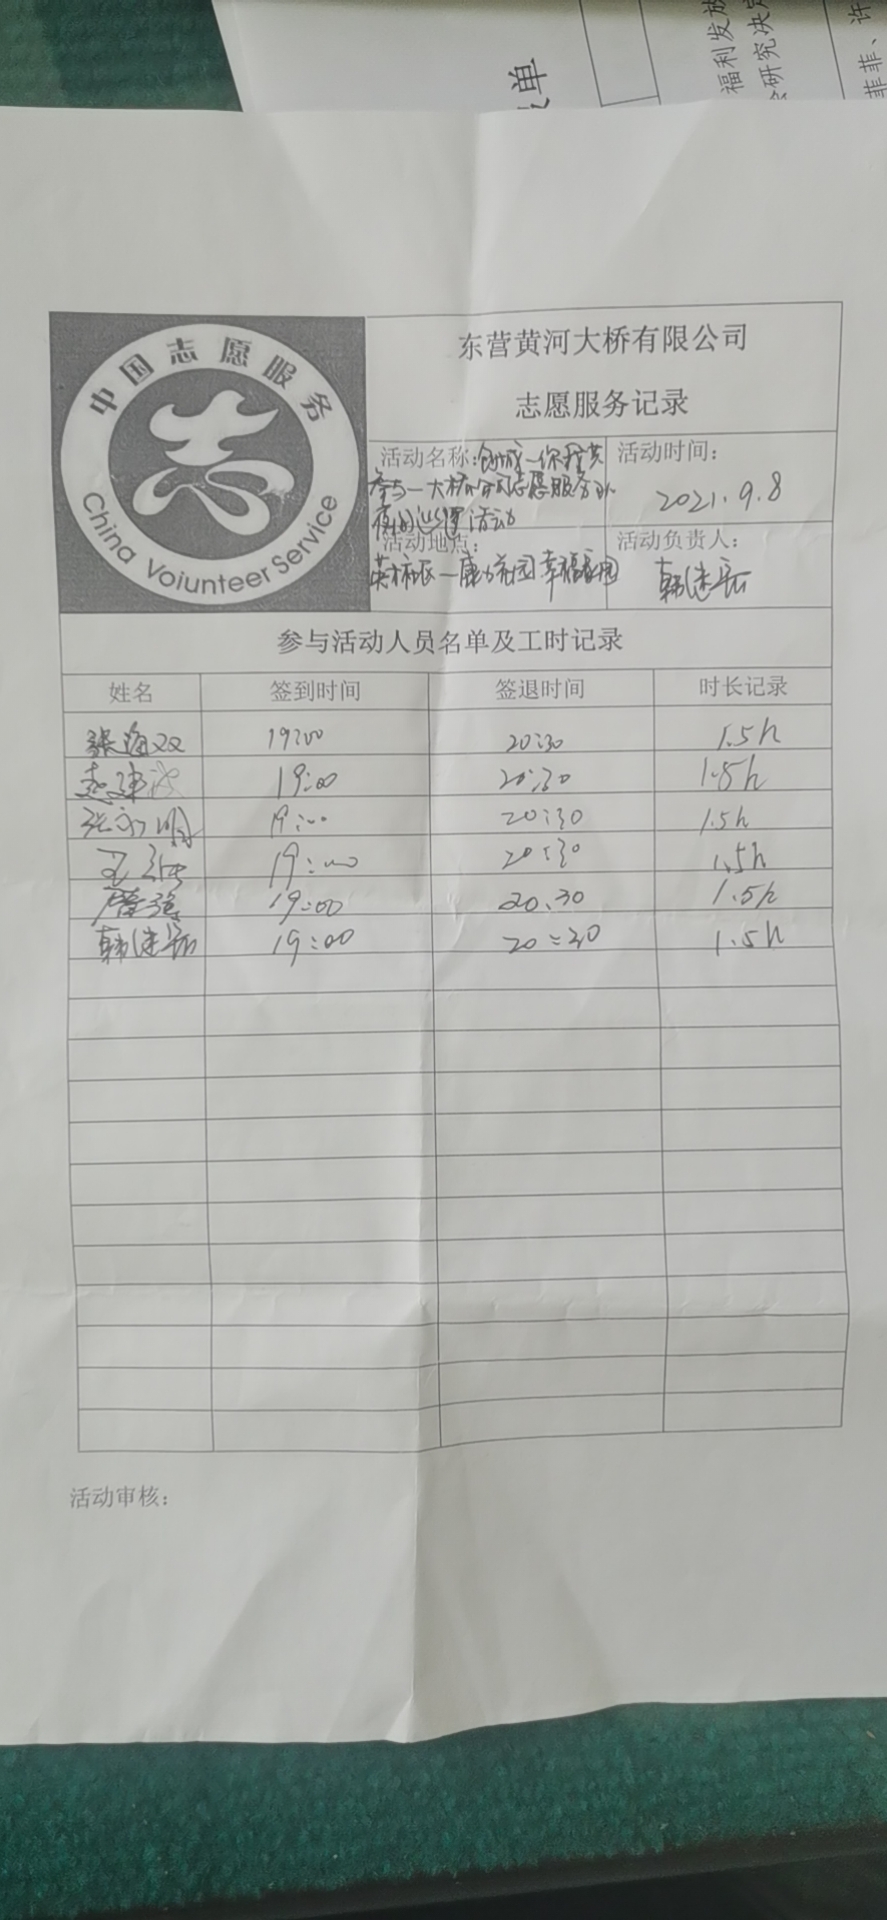 单
福利发放
研究决定
菲菲、许
中国志愿服务
China Voiunteer Service
东营黄河大桥有限公司
志愿服务记录
活动名称:创城一你我共
参与一大桥公司志愿服务队
夜间巡逻活动
活动时间:
2021.9.8
活动地点:
花园幸福家园
活动负责人:
韩建岳
参与活动人员名单及工时记录
姓名 签到时间 签退时间 时长记录
张海双 19:00 20:30 1.5h
赵建波 19:00 20:30 1.5h
张永明 19:00 20:30 1.5h
王 19:00 20:30 1.5h
强 19:00 20:30 1.5h
韩建岳 19:00 20:30 1.5h
活动审核: